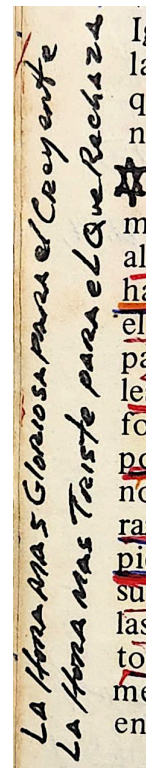 La Hora mas Gloriosa para el Creyente
La Hora mas Triste para el Que Rechaza
la
q
n
m
al
ha
el
pa
le
fo
po
no
ra
pi
su
las
to
me
en